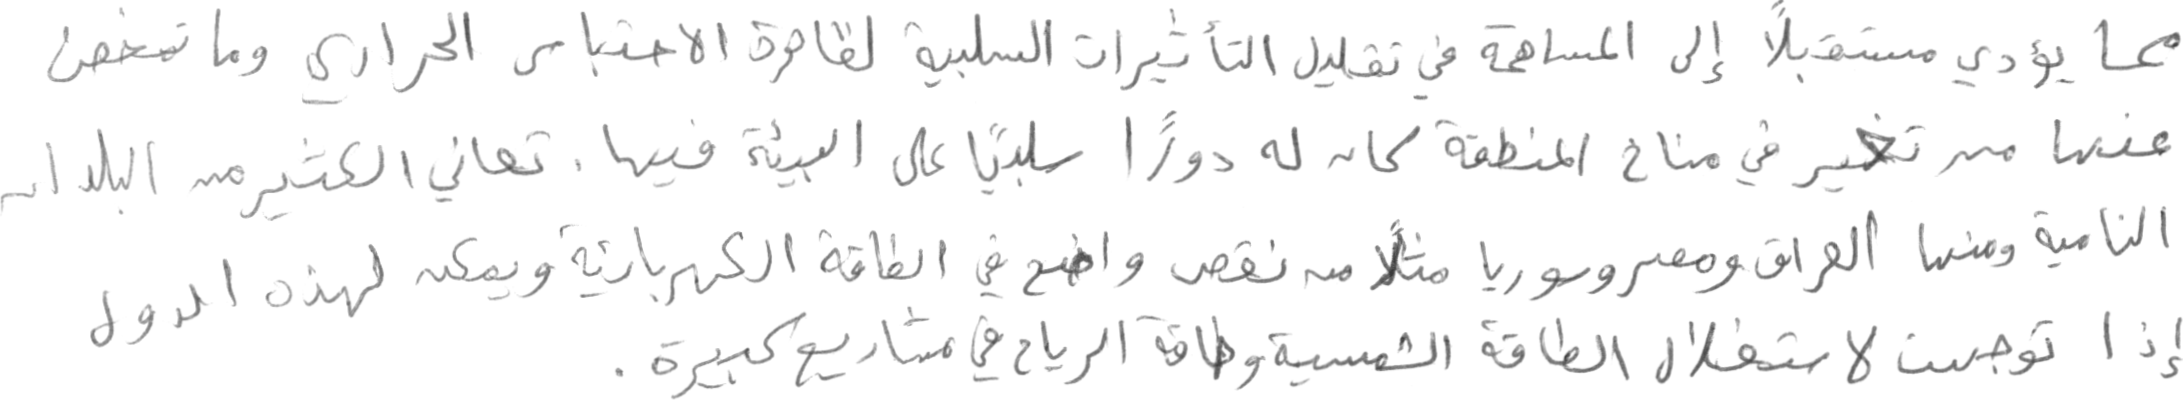 مما يؤدي مستقبلاً إلى المساهمة في تقليل التأثيرات السلبية لظاهرة الاحتباس الحراري وما تمخض
عنها من تغيير في مناخ المنطقة كان له دورًا سلبيًا على البيئة فيها. تعاني الكثير من البلدان
النامية ومنها العراق ومصر وسوريا مثلًا من نقص واضح في الطاقة الكهربائية ويمكن لهذه الدول
إذا توجهت لاستغلال الطاقة الشمسية وطاقة الرياح في مشاريع كبيرة.